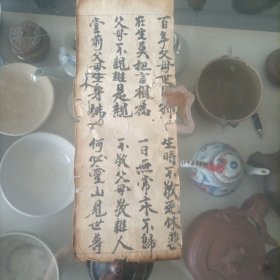 百年父母世 生時不敬死休悲
在生莫把言相 一日無常去不歸
父母不親誰是親 不敬父母敬誰人
堂前父母生身佛 何必靈山見世尊